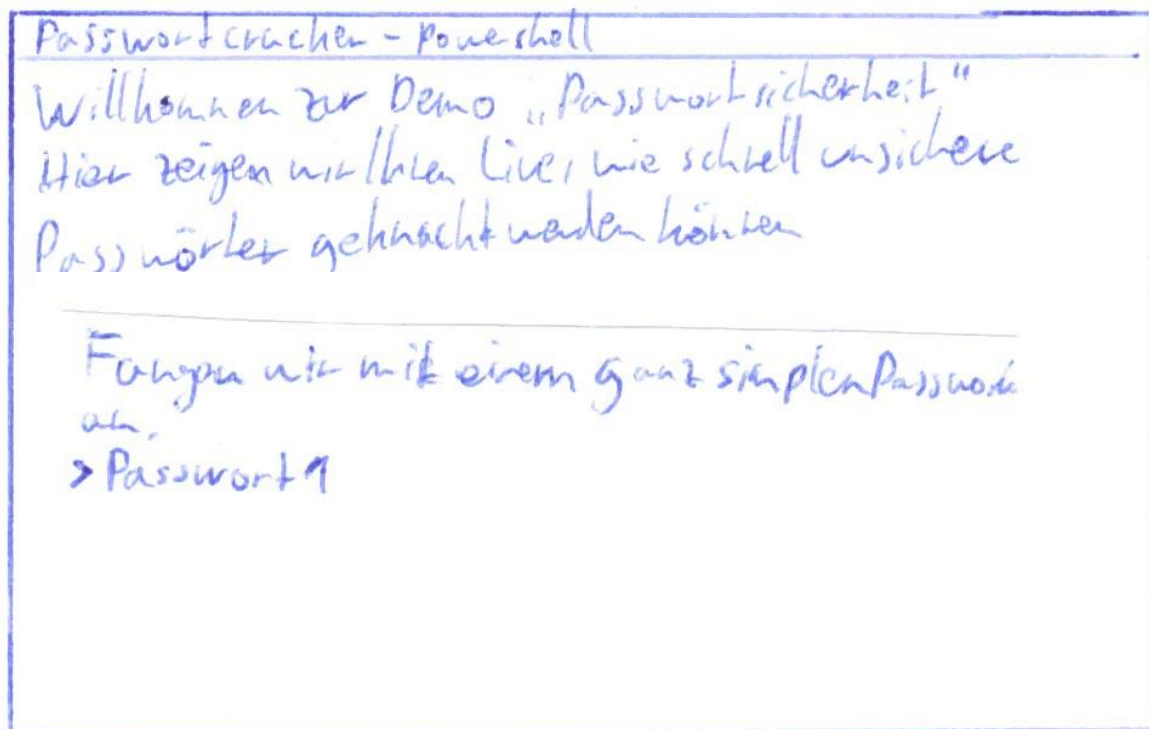 Passwortcracker - Powershell
Willkommen zur Demo „Passwortsicherheit“
Hier zeigen wir Ihnen Live, wie schnell unsichere
Passwörter geknackt werden können
Fangen wir mit einem ganz simplen Passwort
an.
> Passwort1